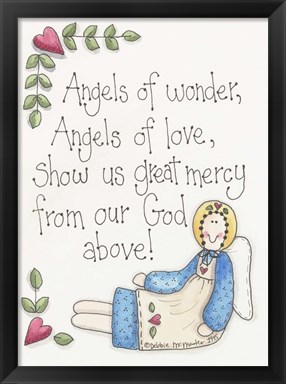 Angels of wonder,
Angels of love,
Show us great mercy
from our God
above!
©Debbie McMaster